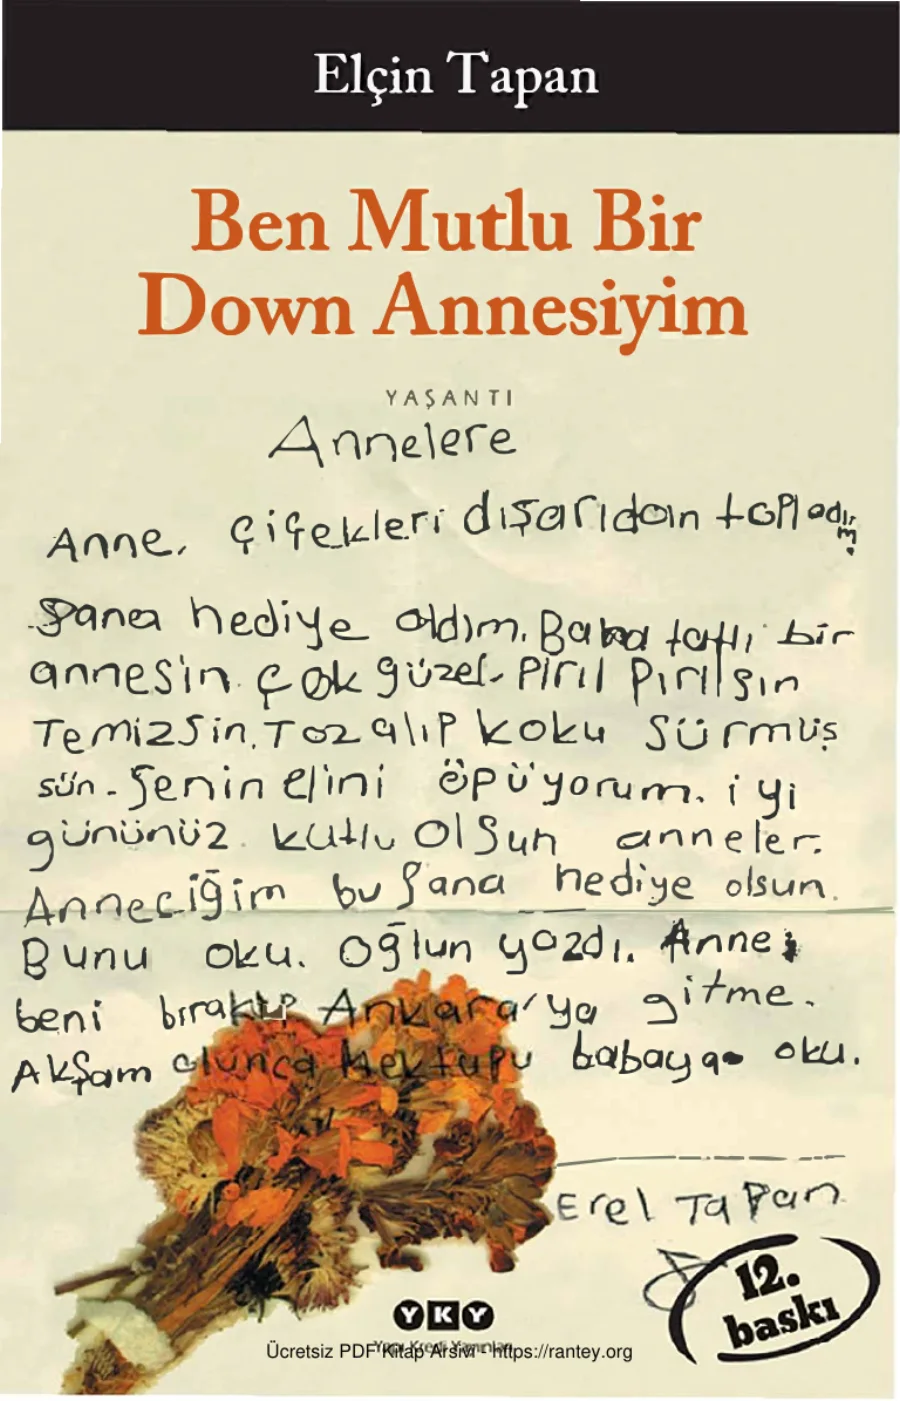 Elçin Tapan
Ben Mutlu Bir
Down Annesiyim
YAŞANTI
Annelere
Anne, çiçekleri dışarıdan topladım.
Sana hediye aldım. Bana tatlı bir
annesin. Çok güzel. Pırıl Pırılsın
Temizsin. Toz alıp koku sürmüş
sün. Senin elini öpüyorum. iyi
gününüz kutlu olsun anneler.
Anneciğim bu sana hediye olsun.
Bunu oku. Oğlun yazdı. Anne
beni bırakıp Ankara'ya gitme.
Akşam olunca Mektupu babaya oku.
Erel Tapan
12.
baskı
YKY
Yapı Kredi Yayınları
Ücretsiz PDF Kitap Arsivi - https://rantey.org